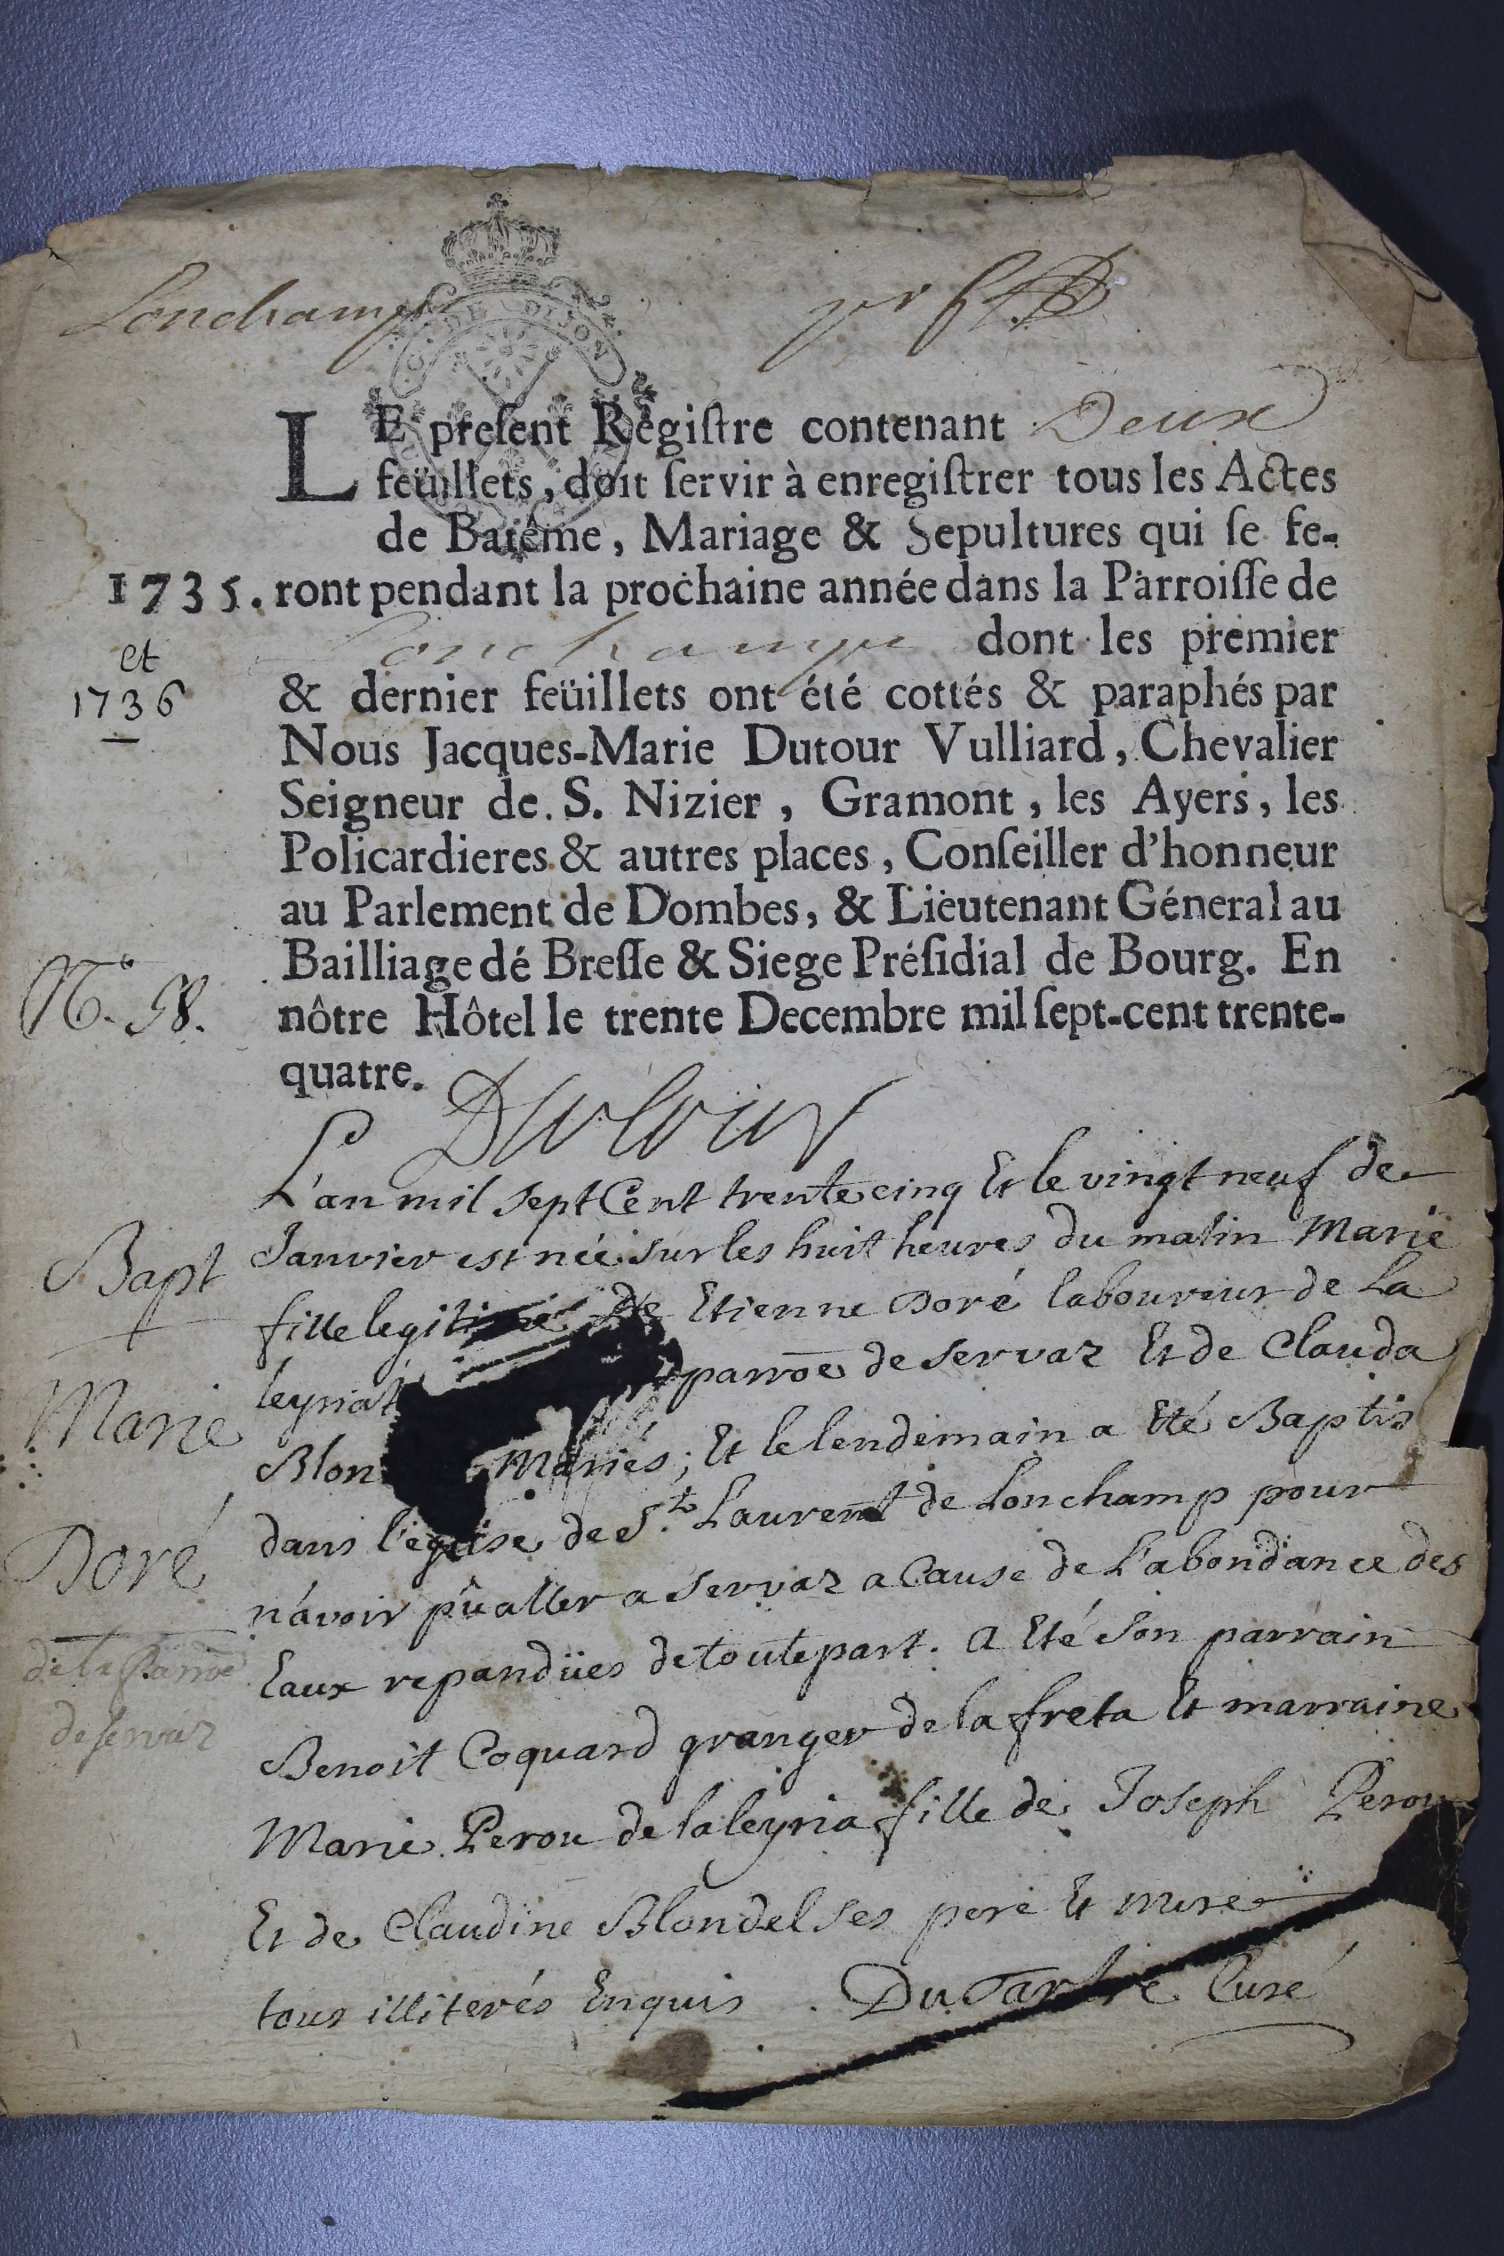 Lonchamp
GE. DE DIJON
LE presẽnt Regiſtre contenant Deux
feüillets, doit ſervir à enregiſtrer tous les Actes
de Batême, Mariage & Sepultures qui ſe fe-
1735. ront pendant la prochaine année dans la Parroiſſe de
et
Lonchamp dont les premier
1736
& dernier feüillets ont été cottés & paraphés par
Nous Jacques-Marie Dutour Vulliard, Chevalier
Seigneur de S. Nizier, Gramont, les Ayers, les
Policardieres & autres places, Conſeiller d'honneur
au Parlement de Dombes, & Lieutenant Géneral au
Bailliage dé Breſſe & Siege Préſidial de Bourg. En
nôtre Hôtel le trente Decembre mil ſept-cent trente-
quatre.
Dutour
L'an mil sept Cent trente cinq Et le vingt neuf de
Janvier est née sur les huit heures du matin Marie
Bapt
fille legitime de Etienne Doré laboureur de La
leyriat parroe de servaz Et de Clauda
Marie
Blon Mariés; Et le lendemain a Eté Baptis
dans l'eglise de St. Laurent de Lonchamp pour
Doré
n'avoir pû aller a Servaz a Cause de L'abondance des
de la Parroe
Eaux repandües de toute part. a Eté son parrain
de servaz
Benoit Coquard granger de la freta Et marraine
Marie Perou de la leyria fille de Joseph Perou
Et de Claudine Blondel ses pere Et mere
tous illiterés Enquis. DuTartre Curé